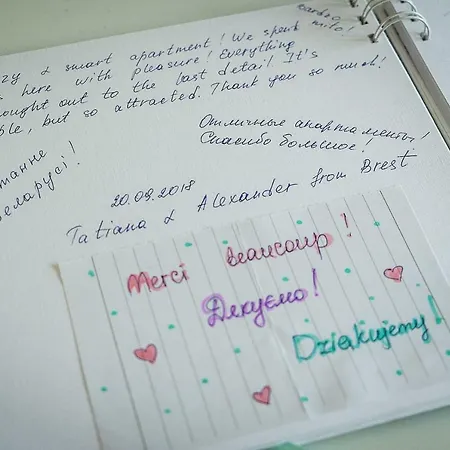 zy & smart apartment! We spent
here with pleasure! Everything
ought out to the last detail. It's
ble, but so attracted. Thank you so much!
Отличные апартаменты!
Спасибо большое!
танне
еларусі!
20.09.2018
Tatiana & Alexander from Brest
Merci beaucoup!
Дякуємо!
Dziękujemy!